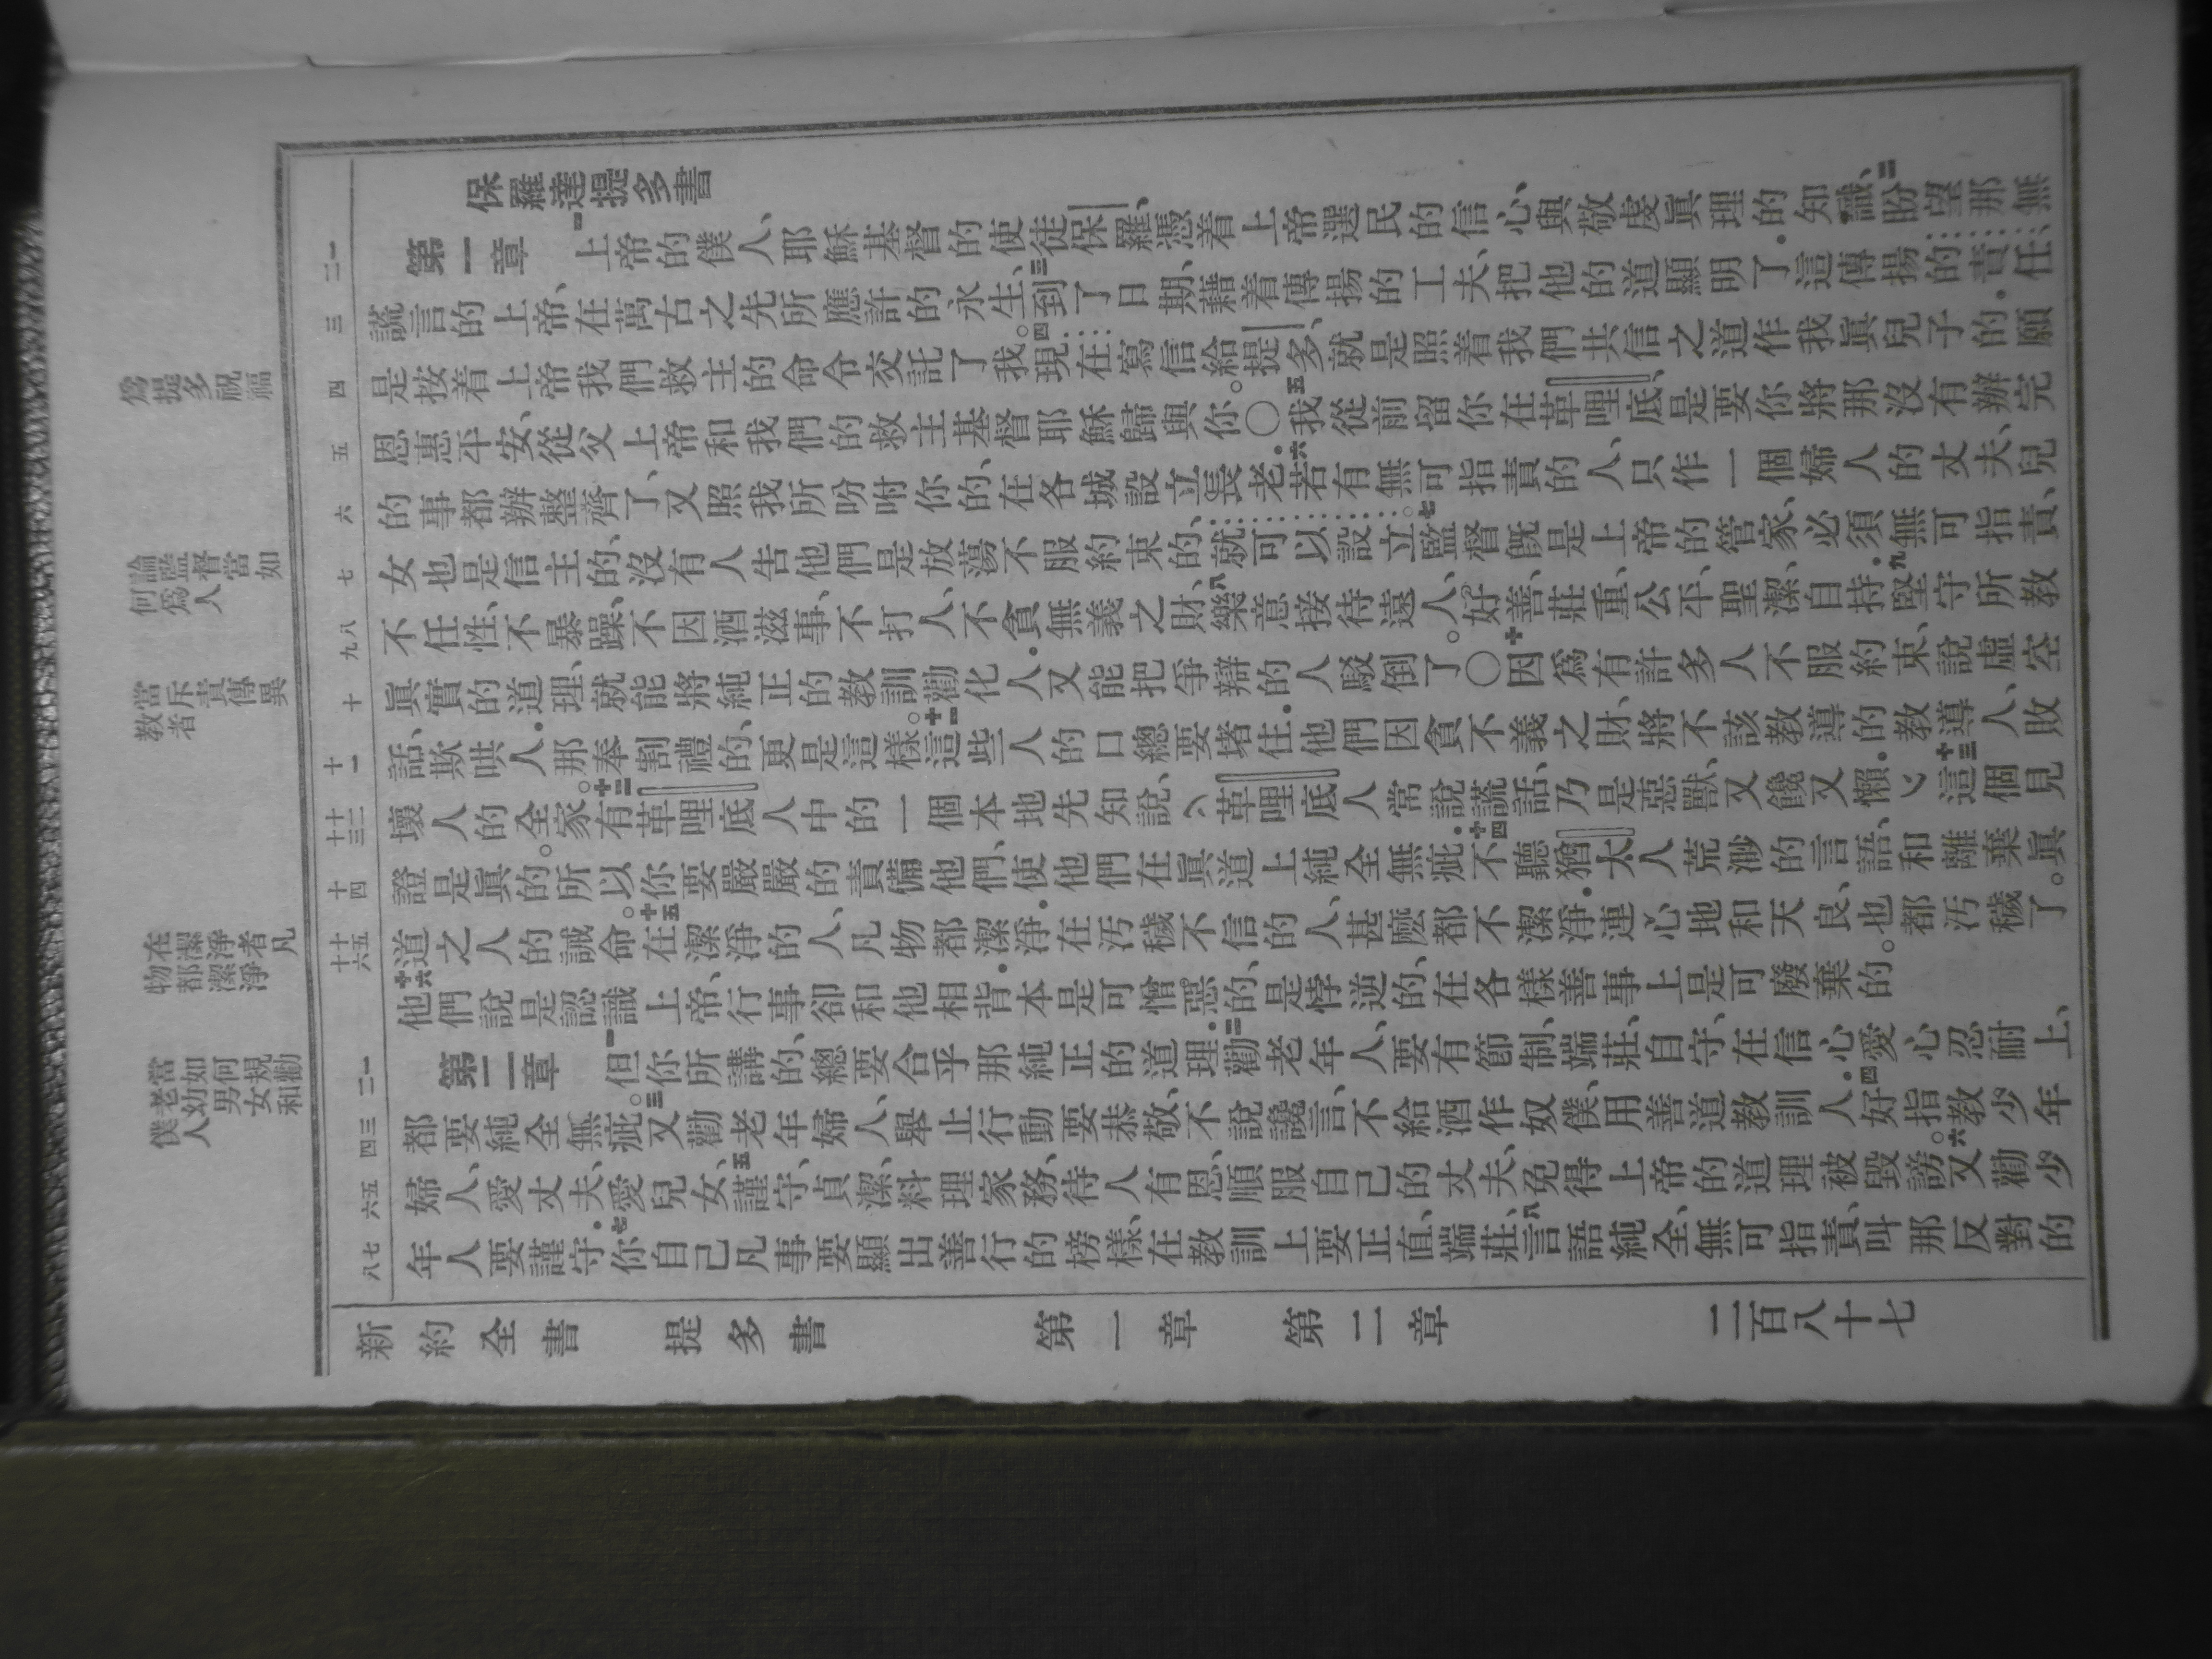 保羅達提多書
第一章 一上帝的僕人、耶穌基督的使徒保羅、憑着上帝選民的信心、與敬虔眞理的知識、二盼望那無
謊言的上帝、在萬古之先所應許的永生、三到了日期、藉着傳揚的工夫、把他的道顯明了．這傳揚的責任、
是按着上帝我們救主的命令交託了我。四現在寫信給提多、就是照着我們共信之道作我眞兒子的．願
恩惠平安、從父上帝和我們的救主基督耶穌歸與你。○五我從前留你在革哩底、是要你將那沒有辦完
的事都辦整齊了、又照我所吩咐你的、在各城設立長老．六若有無可指責的人、只作一個婦人的丈夫、兒
女也是信主的、沒有人告他們是放蕩不服約束的、就可以設立。七監督旣是上帝的管家、必須無可指責、
不任性、不暴躁、不因酒滋事、不打人、不貪無義之財、八樂意接待遠人、好善、莊重、公平、聖潔、自持．九堅守所教
眞實的道理、就能將純正的教訓勸化人．又能把爭辯的人駁倒了。○十因爲有許多人不服約束、說虛空
話、欺哄人．那奉割禮的、更是這樣。十一這些人的口總要堵住．他們因貪不義之財、將不該教導的教導人、敗
壞人的全家。十二有革哩底人中的一個本地先知說、革哩底人常說謊話、乃是惡獸、又饞又懶．十三這個見
證是眞的。所以你要嚴嚴的責備他們、使他們在眞道上純全無疵．十四不聽猶太人荒渺的言語、和離棄眞
道之人的誡命。十五在潔淨的人、凡物都潔淨．在汚穢不信的人、甚麽都不潔淨．連心地和天良、也都汚穢了。
十六他們說是認識上帝、行事卻和他相背．本是可憎惡的、是悖逆的、在各樣善事上是可廢棄的。
第二章 一但你所講的、總要合乎那純正的道理．二勸老年人、要有節制、端莊、自守、在信心愛心忍耐上、
都要純全無疵。三又勸老年婦人、舉止行動要恭敬、不說讒言、不給酒作奴僕、用善道教訓人．四好指教少年
婦人、愛丈夫、愛兒女、五謹守、貞潔、料理家務、待人有恩、順服自己的丈夫、免得上帝的道理被毀謗。六又勸少
年人要謹守．七你自己凡事要顯出善行的榜樣、在教訓上要正直、端莊、八言語純全、無可指責、叫那反對的
新約全書 提多書 第一章 第二章 二百八十七
一二
三
四
五
六
七
八九
十
十一
十二十三
十四
十五十六
一二
三四
五六
七八
爲提多祝福
論監督當如
何爲人
當斥責傳異
教者
在潔淨者凡
物都潔淨
當如何規勸
老幼男女和
僕人